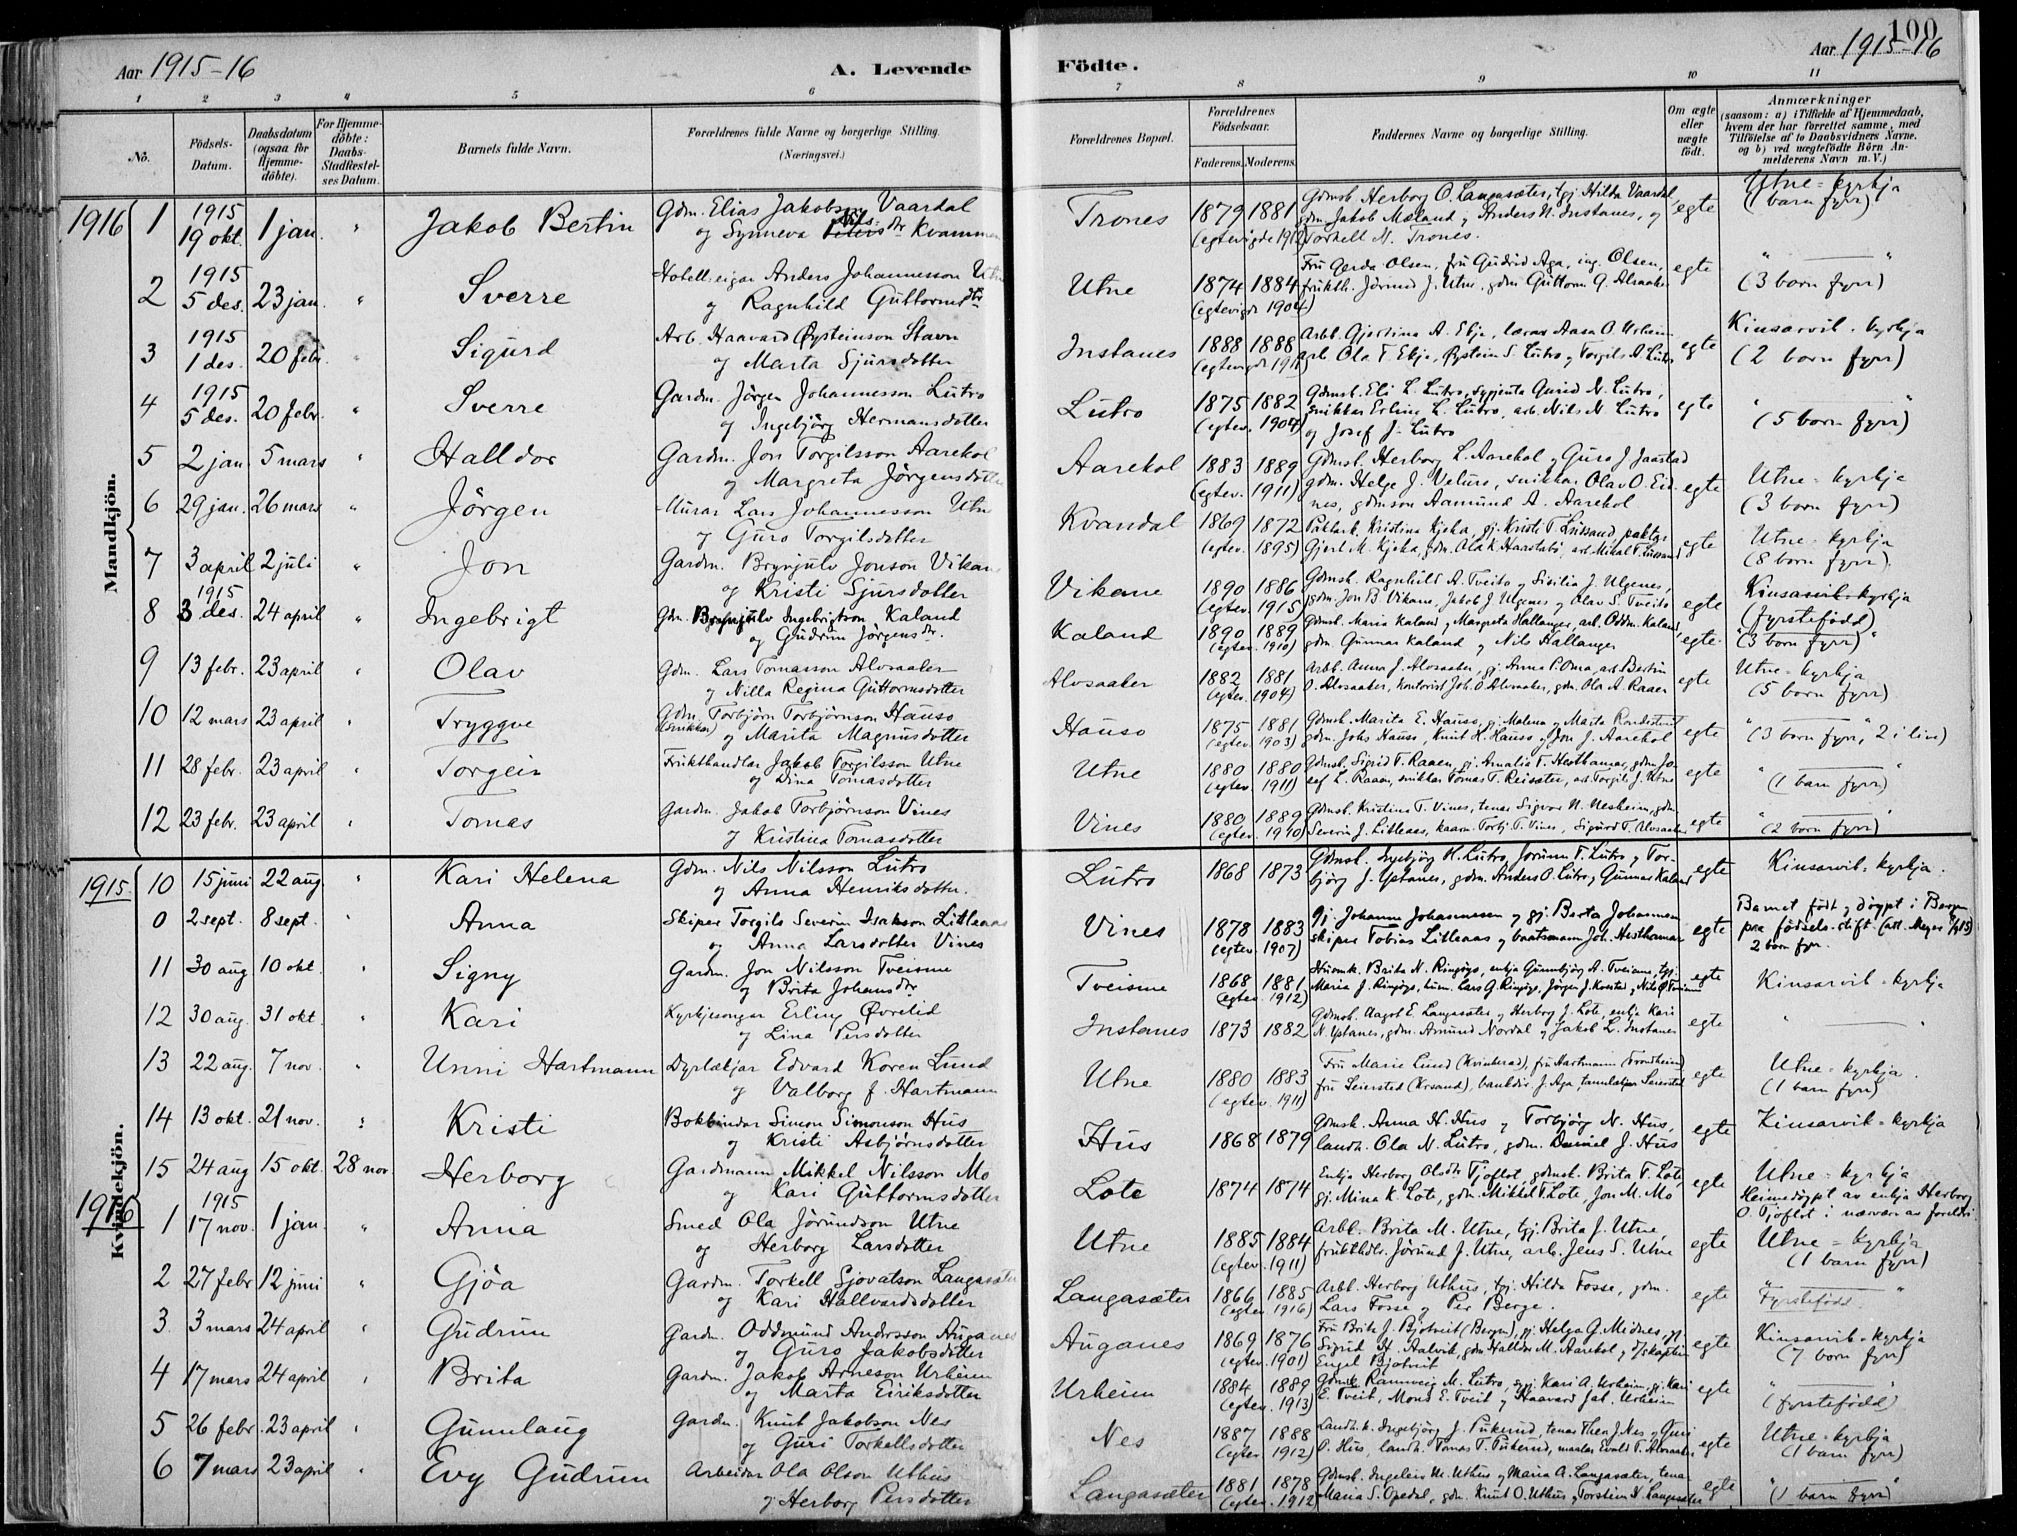 Aar 1915-16
A. Levende
Födte.
Aar 1915-16
100
1 2 3 4 5 6 7 8 9 10 11
No.
Födsels-
Datum.
Daabsdatum
(ogsaa for
Hjemme-
döbte).
For Hjemme-
döbte:
Daabs-
Stadfæstel-
ses Datum.
Barnets fulde Navn.
Forældrenes fulde Navne og borgerlige Stilling.
(Næringsvei.)
Forældrenes Bopæl.
Forældrenes
Födselsaar.
Faderens. Moderens.
Faddernes Navne og borgerlige Stilling.
Om ægte
eller
uægte
født.
Anmærkninger
(saasom: a) i Tilfælde af Hjemmedaab,
hvem der har forrettet samme, med
Tilföielse af to Daabsvidners Navne,
og b) ved uægtefödte Börn An-
melderens Navn m. V.)
Mandkjön.
1916 1 1915 19 okt. 1 jan. " Jakob Bertin Gdm. Elias Jakobson Vaardal
og Synneva Nilsdr Kvammen
Trones 1879 1881 (egtevigde 1912) Gdmsk. Herborg O. Langasæter, tgj. Hilda Vaardal,
gdm. Jakob Mæland og Anders N. Instanes, og
Torkell M. Trones. egte Utne-kyrkja
(1 barn fyrr)
2 1915 5 des. 23 jan. " Sverre Hotell-eigar Anders Johannesson Utne
og Ragnhild Guttormsdtr
Utne 1874 1884 (egtevigde 1904) Fru Gerda Olsen, fru Gudrid Aga, ing. Olsen,
frukth. Jørund J. Utne, gdm Guttorm G. Alvsaaker egte " "
(3 born fyrr)
3 1915 1 des. 20 febr. " Sigurd Arb. Haavard Øysteinson Stavn
og Marta Sjursdotter
Instanes 1888 1888 (egtevigde 1911) Arbk. Gjertina A. Ekje, lærar Aasa O. Urheim,
arb. Ola T. Ekje, Øystein S. Lutro og Torgils A. Lutro egte Kinsarvik-kyrkja
(2 born fyrr)
4 1915 5 des. 20 febr. " Sverre Gardm. Jörgen Johannesson Lutro
og Ingebjörg Hermansdotter
Lutro 1875 1882 (egtev. 1904) Gdmsk. Eli L. Lutro, sypjenta Gunid N. Lutro,
snikkar Erling L. Lutro, arb. Nils N. Lutro
og Josef J. Lutro egte " "
(5 born fyrr)
5 2 jan. 5 mars " Halldor Gardm. Jon Torgilsson Aarekol
og Margreta Jörgensdotter
Aarekol 1883 1889 (egtev. 1911) Gdmsk. Herborg L. Aarekol og Guro J. Jaastad
gdm. Helge J. Velure, snikkar Olav O. Eid-
nes, gdmson Aamund A. Aarekol egte Utne-kyrkja
(3 born fyrr)
6 29 jan. 26 mars " Jörgen Murar Lars Johannesson Utne
og Guro Torgilsdotter
Kvandal 1869 1872 (egtev. 1895) Kristina Kjeka, gj. Kristi T. Lussand,
Gjert M. Kjeka, gdm. Ola K. Haastabø, arb. Mikal T. Lussand egte Utne-kyrkja
(8 born fyrr).
7 3 april 2 juli " Jon Gardm. Brynjulv Jonson Vikane
og Kristi Sjursdotter
Vikane 1890 1886 (egtev. 1915) Gdmsk. Ragnhild A. Tveito og Sisilia J. Ulgenes,
gdm. Jon B. Vikane, Jakob J. Ulgenes og Olav S. Tveito egte Kinsarvik-kyrkja
(fyrstefödd)
8 1915 3 des. 24 april " Ingebrigt Gdm. Brynjulv Ingebrigtson Kaland
og Gudrun Jörgensdr.
Kaland 1890 1889 (egtev. 1910) Gdmsk. Maria Kaland og Margreta Hallanger, arb. Oddm. Kaland,
gdm Gunnar Kaland og Nils Hallanger egte " "
(3 born fyrr)
9 13 febr. 23 april " Olav Gdm. Lars Tomasson Alvsaaker
og Nilla Regina Guttormsdotter
Alvsaaker 1882 1881 (egtev. 1904) Arbk. Anna J. Alvsaaker, gj. Anna P. Oma, arb. Bertin
O. Alvsaaker, kontorist Joh. O. Alvsaaker, gdm. Ola A. Raaen egte Utne-kyrkja
(5 born fyrr)
10 12 mars 23 april " Tryggve Gdm. Torbjørn Torbjörnson Hauso
(snikkar) og Marita Magnusdotter
Hauso 1875 1881 (egtev. 1903) Gdmsk. Marita E. Hauso, gj. Malena og Marta Rondestveit
gdm. Johs Hauso, Knut H. Hauso og Jon J. Aarekol egte " "
(3 born fyrr, 2 i live)
11 28 febr. 23 april " Torgeir Frukthandlar Jakob Torgilsson Utne
og Dina Tomasdotter
Utne 1880 1880 (egtev. 1911) Gdmsk. Sigrid T. Raaen, gj. Amalia T. Hesthamar, gdm Jo-
sef L. Raaen, snikkar Tomas T. Reisæter, arb. Torgils J. Utne egte " "
(1 barn fyrr)
12 23 febr. 23 april " Tomas Gardm. Jakob Torbjörnson Vines
og Kristina Tomasdotter
Vines 1880 1889 (egtev. 1910) Gdmsk. Kristina T. Vines, tenar Sigvor N. Nesheim, gdm
Severin J. Litleaas, kaarm. Torbj. T. Vines, Sigurd T. Alvsaaker egte " "
(2 born fyrr)
Kvindekjön.
1915 10 15 juni 22 aug. " Kari Helena Gdm. Nils Nilsson Lutro
og Anna Henriksdotter.
Lutro 1868 1873 Gdmsk. Ingebjörg H. Lutro, Jorunn T. Lutro og Tor-
björg J. Yptanes, gdm. Anders O. Lutro og Gunnar Kaland egte Kinsarvik-kyrkja.
0 2 sept. 8 sept. " Anna Skiper Torgils Severin Isakson Litleaas
og Anna Larsdotter Vines
Vines 1878 1883 (egtev. 1907) Gj. Johanne Johannesen og gj. Berta Johannesen
skiper Tobias Litleaas og baatsmann Joh. Hesthamar egte Barnet födt og döypt i Bergen
paa födsels-stift. (att. Meyer 9/9 15)
2 born fyr.
11 30 aug 10 okt. " Signy Gardm. Jon Nilsson Tveisme
og Brita Johansdr
Tveisme 1868 1881 (egtev. 1912) Husmk. Brita N. Ringöyo, enkja Gunnbjörg A. Tveisme, tgj.
Maria J. Ringöyo, husm. Lars G. Ringöyo, Jörgen J. Kvestad og Nils O. Tveisme egte Kinsarvik-kyrkja
12 30 aug. 31 okt. " Kari Kyrkjesongar Erling Øvrelid
og Lina Persdotter
Instanes 1873 1882 Gdmsk. Aagot E. Langesæter og Herborg J. Lote, enkja Kari
N. Yptanes, gdm. Amund Nordal og Jakob L. Instanes egte " "
13 22 aug. 7 nov. " Unni Hartmann Dyrlækjar Edvard Koren Lund
og Valborg f. Hartmann
Utne 1880 1883 (egtev. 1911) Fru Marie Lund (Kvinherad), fru Hartmann (Trondheim)
fru Seiersted (Krsand), bankdir. J. Aga, tannlækjar Seiersted egte Utne-kyrkja.
(1 barn fyrr)
14 13 okt. 21 nov. " Kristi Bokbindar Simon Simonson Hus
og Kristi Asbjørnsdotter
Hus 1868 1879 Gdmsk. Anna H. Hus og Torbjörg N. Hus,
landh. Ola N. Lutro, gdm. Daniel J. Hus egte Kinsarvik-kyrkja
15 24 aug 15 okt. 28 nov. Herborg Gardmann Mikkel Nilsson Mo
og Kari Guttormsdotter
Lote 1874 1874 Enkja Herborg Olsdr Tjoflot, gdmsk. Brita T. Lote,
gj. Mina K. Lote, gdm. Mikkel T. Lote, Jon M. Mo egte Utne-kyrkja
Heimedöypt av enkja Herborg
O. Tjoflot i nærvær av foreldri.
1916 1 1915 17 nov. 1 jan. " Anna Smed Ola Jörundson Utne
og Herborg Larsdotter
Utne 1885 1884 (egtev. 1911) Arbk. Brita M. Utne, tgj. Brita J. Utne,
frukthdlr. Jørund J. Utne, arb. Jens S. Utne egte Utne-kyrkja
(1 barn fyrr)
2 27 febr 12 juni " Gjöa Gardm. Torkell Sjovatson Langasæter
og Kari Hallvardsdotter
Langasæter 1866 1885 (egtev. 1916) Arbk. Herborg Uthus, tgj. Hilda Fosse, gdm.
Lars Fosse og Per Berge. egte " "
Fyrstefödd.
3. 3 mars 24 april " Gudrun Gardm. Oddmund Andersson Auganes
og Guro Jakobsdotter
Auganes 1869 1876 (egtev. 1901) Fru Brita J. Bjotveit (Bergen), gj. Helga G. Midnes, gj.
Sigrid H. Halvik, gdm Halldor M. Aarekol og d/skaptein
Engel Bjotveit egte Kinsarvik-kyrkja
(7 born fyrr)
4 17 mars 24 april " Brita Gardm. Jakob Arneson Urheim
og Marta Eiriksdotter
Urheim 1884 1889 (egtev. 1913) Gdmsk Rannveig M. Lutro, gj. Kari A. Urheim, gj. Kari
E. Tveit, Mons E. Tveit og Haavard Jak. Urheim egte " "
(fyrstefödd)
5 26 febr. 23 april " Gunnlaug Gardm. Knut Jakobson Nes
og Guri Torkellsdotter
Nes 1887 1888 (egtev. 1912) Landh.k. Ingebjörg J. Pukerud, tenar Thea J. Nes og Guri
O. Hus, landh. Tomas T. Pukerud, maalar Evald T. Alvsaaker egte Utne-kyrkja
(1 barn fyrr)
6 7 mars 23 april " Evy Gudrun Arbeidar Ola Olson Uthus
og Herborg Persdotter
Langasæter 1881 1878 (egtev. 1912) Gdmsk. Ingeleiv M. Uthus og Maria A. Langasæter, tenar
Maria S. Opedal, gdm. Knut O. Uthus, Torstein N. Langasæter egte " "
(1 barn fyrr)